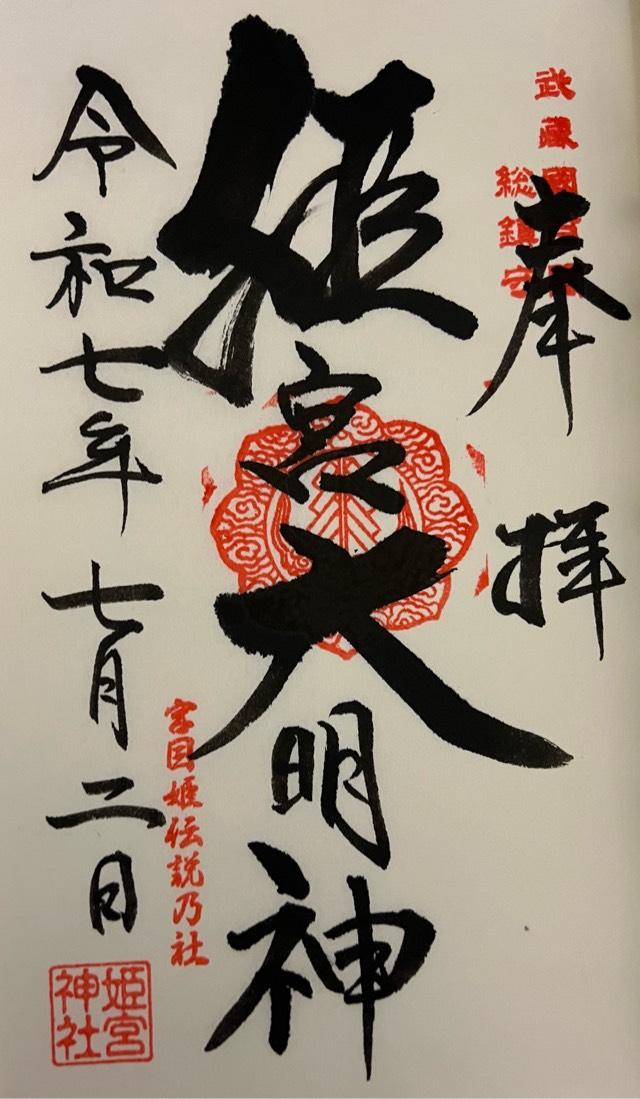 奉拝
武蔵國
総鎮守
姫宮大明神
宮目姫伝説乃社
令和七年七月二日
姫宮
神社